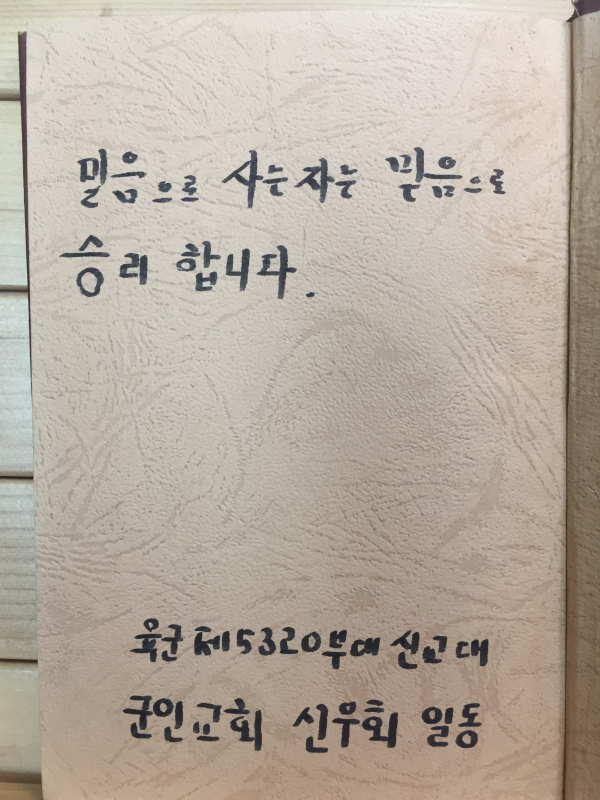 믿음으로 사는자는 믿음으로
승리 합니다.
육군 제5320부대 신교대
군인교회 신우회 일동